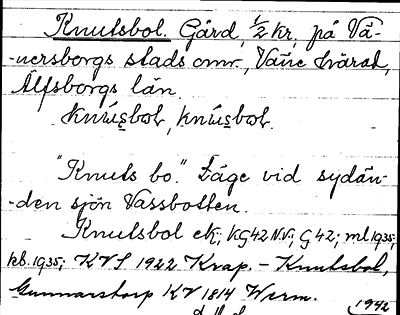 Knutsbol. Gård, 1/2 kr, på Vä-
-nersborgs stads omr., Väne härad,
Älfsborgs län.
knúsbol, knúsbol.
"Knuts bo." Läge vid sydän-
-den sjön Vassbotten.
Knutsbol ek; KG42 N.V.; G42; ml 1935;
kb. 1935; KVS 1922 Knap. – Knutsbol,
Gunnarstorp KV 1814 Werm.
1942